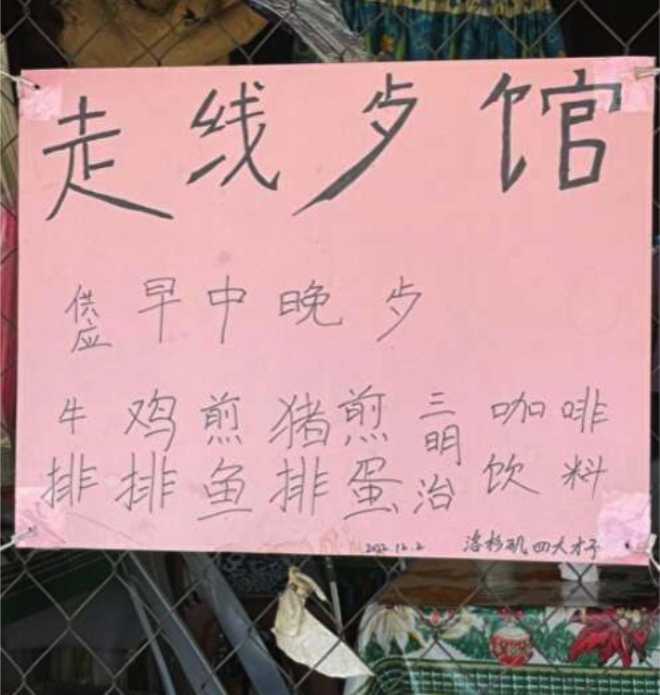 走线歺馆
供应早中晚歺
牛排
鸡排
煎鱼
猪排
煎蛋
三明治
咖啡
饮料
2022.12.2 洛杉矶四大才子